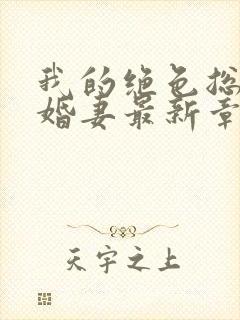 我的绝色总
婚妻最新章
天宇之上